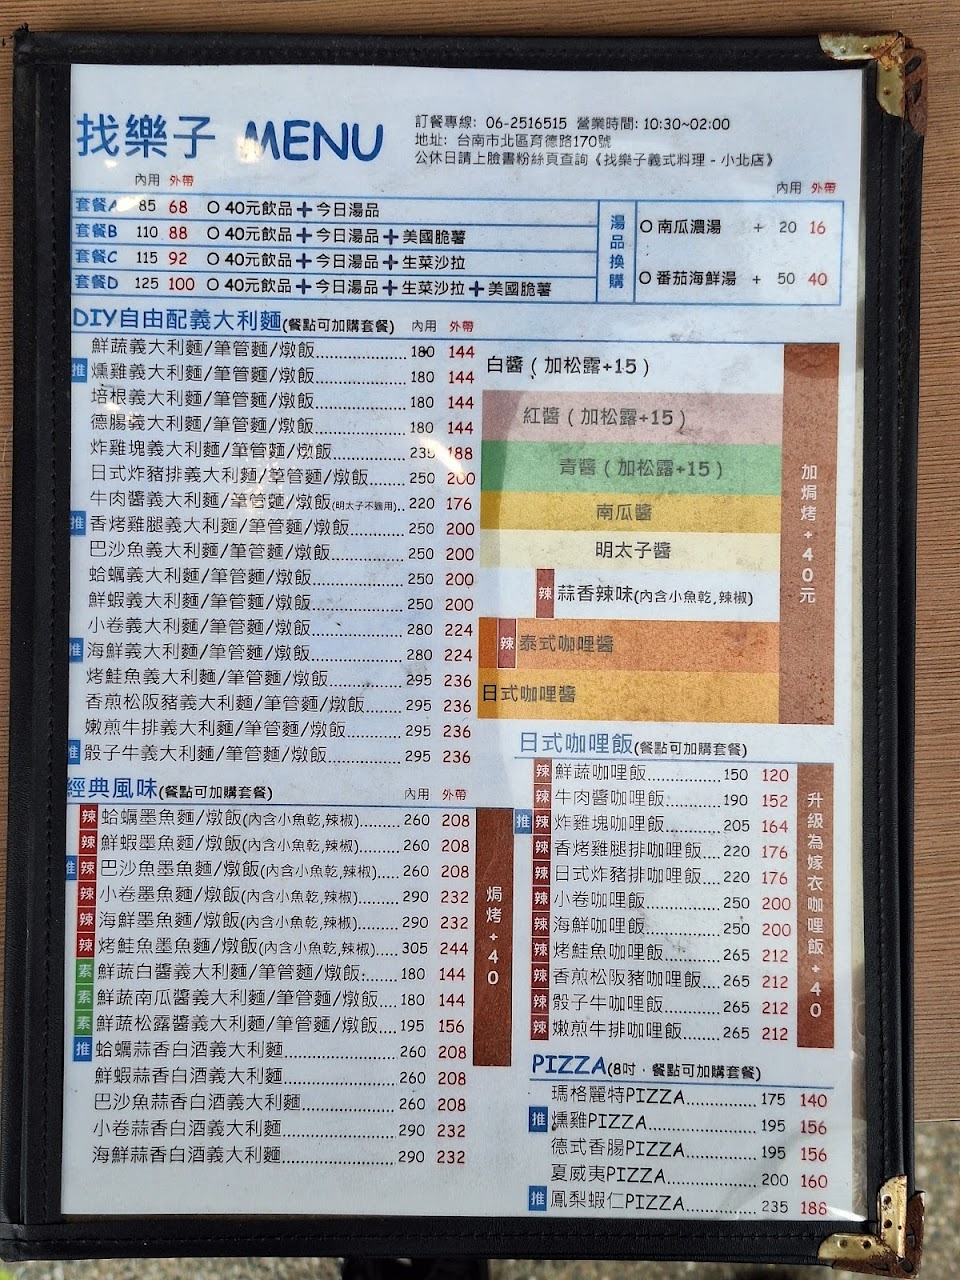 找樂子 MENU
訂餐專線: 06-2516515 營業時間: 10:30~02:00
地址: 台南市北區育德路170號
公休日請上臉書粉絲頁查詢《找樂子義式料理 - 小北店》
內用 外帶
套餐A 85 68 O 40元飲品+今日湯品
套餐B 110 88 O 40元飲品+今日湯品+美國脆薯
套餐C 115 92 O 40元飲品+今日湯品+生菜沙拉
套餐D 125 100 O 40元飲品+今日湯品+生菜沙拉+美國脆薯
湯品換購
內用 外帶
O 南瓜濃湯 + 20 16
O 番茄海鮮湯 + 50 40
DIY自由配義大利麵(餐點可加購套餐) 內用 外帶
鮮蔬義大利麵/筆管麵/燉飯 180 144
推 燻雞義大利麵/筆管麵/燉飯 180 144
培根義大利麵/筆管麵/燉飯 180 144
德腸義大利麵/筆管麵/燉飯 180 144
炸雞塊義大利麵/筆管麵/燉飯 235 188
日式炸豬排義大利麵/筆管麵/燉飯 250 200
牛肉醬義大利麵/筆管麵/燉飯(明太子不適用) 220 176
推 香烤雞腿義大利麵/筆管麵/燉飯 250 200
巴沙魚義大利麵/筆管麵/燉飯 250 200
蛤蠣義大利麵/筆管麵/燉飯 250 200
鮮蝦義大利麵/筆管麵/燉飯 250 200
小卷義大利麵/筆管麵/燉飯 280 224
推 海鮮義大利麵/筆管麵/燉飯 280 224
烤鮭魚義大利麵/筆管麵/燉飯 295 236
香煎松阪豬義大利麵/筆管麵/燉飯 295 236
嫩煎牛排義大利麵/筆管麵/燉飯 295 236
推 骰子牛義大利麵/筆管麵/燉飯 295 236
白醬 ( 加松露+15 )
紅醬 ( 加松露+15 )
青醬 ( 加松露+15 )
南瓜醬
明太子醬
辣 蒜香辣味(內含小魚乾,辣椒)
辣 泰式咖哩醬
日式咖哩醬
加焗烤+40元
經典風味(餐點可加購套餐) 內用 外帶
辣 蛤蠣墨魚麵/燉飯(內含小魚乾,辣椒) 260 208
辣 鮮蝦墨魚麵/燉飯(內含小魚乾,辣椒) 260 208
推 辣 巴沙魚墨魚麵/燉飯(內含小魚乾,辣椒) 260 208
辣 小卷墨魚麵/燉飯(內含小魚乾,辣椒) 290 232
辣 海鮮墨魚麵/燉飯(內含小魚乾,辣椒) 290 232
辣 烤鮭魚墨魚麵/燉飯(內含小魚乾,辣椒) 305 244
素 鮮蔬白醬義大利麵/筆管麵/燉飯 180 144
素 鮮蔬南瓜醬義大利麵/筆管麵/燉飯 180 144
素 鮮蔬松露醬義大利麵/筆管麵/燉飯 195 156
推 蛤蠣蒜香白酒義大利麵 260 208
鮮蝦蒜香白酒義大利麵 260 208
巴沙魚蒜香白酒義大利麵 260 208
小卷蒜香白酒義大利麵 290 232
海鮮蒜香白酒義大利麵 290 232
焗烤+40
日式咖哩飯(餐點可加購套餐)
辣 鮮蔬咖哩飯 150 120
辣 牛肉醬咖哩飯 190 152
推 辣 炸雞塊咖哩飯 205 164
辣 香烤雞腿排咖哩飯 220 176
辣 日式炸豬排咖哩飯 220 176
辣 小卷咖哩飯 250 200
辣 海鮮咖哩飯 250 200
辣 烤鮭魚咖哩飯 265 212
辣 香煎松阪豬咖哩飯 265 212
辣 骰子牛咖哩飯 265 212
辣 嫩煎牛排咖哩飯 265 212
升級為嫁衣咖哩飯+40
PIZZA(8吋・餐點可加購套餐)
瑪格麗特PIZZA 175 140
推 燻雞PIZZA 195 156
德式香腸PIZZA 195 156
夏威夷PIZZA 200 160
推 鳳梨蝦仁PIZZA 235 188